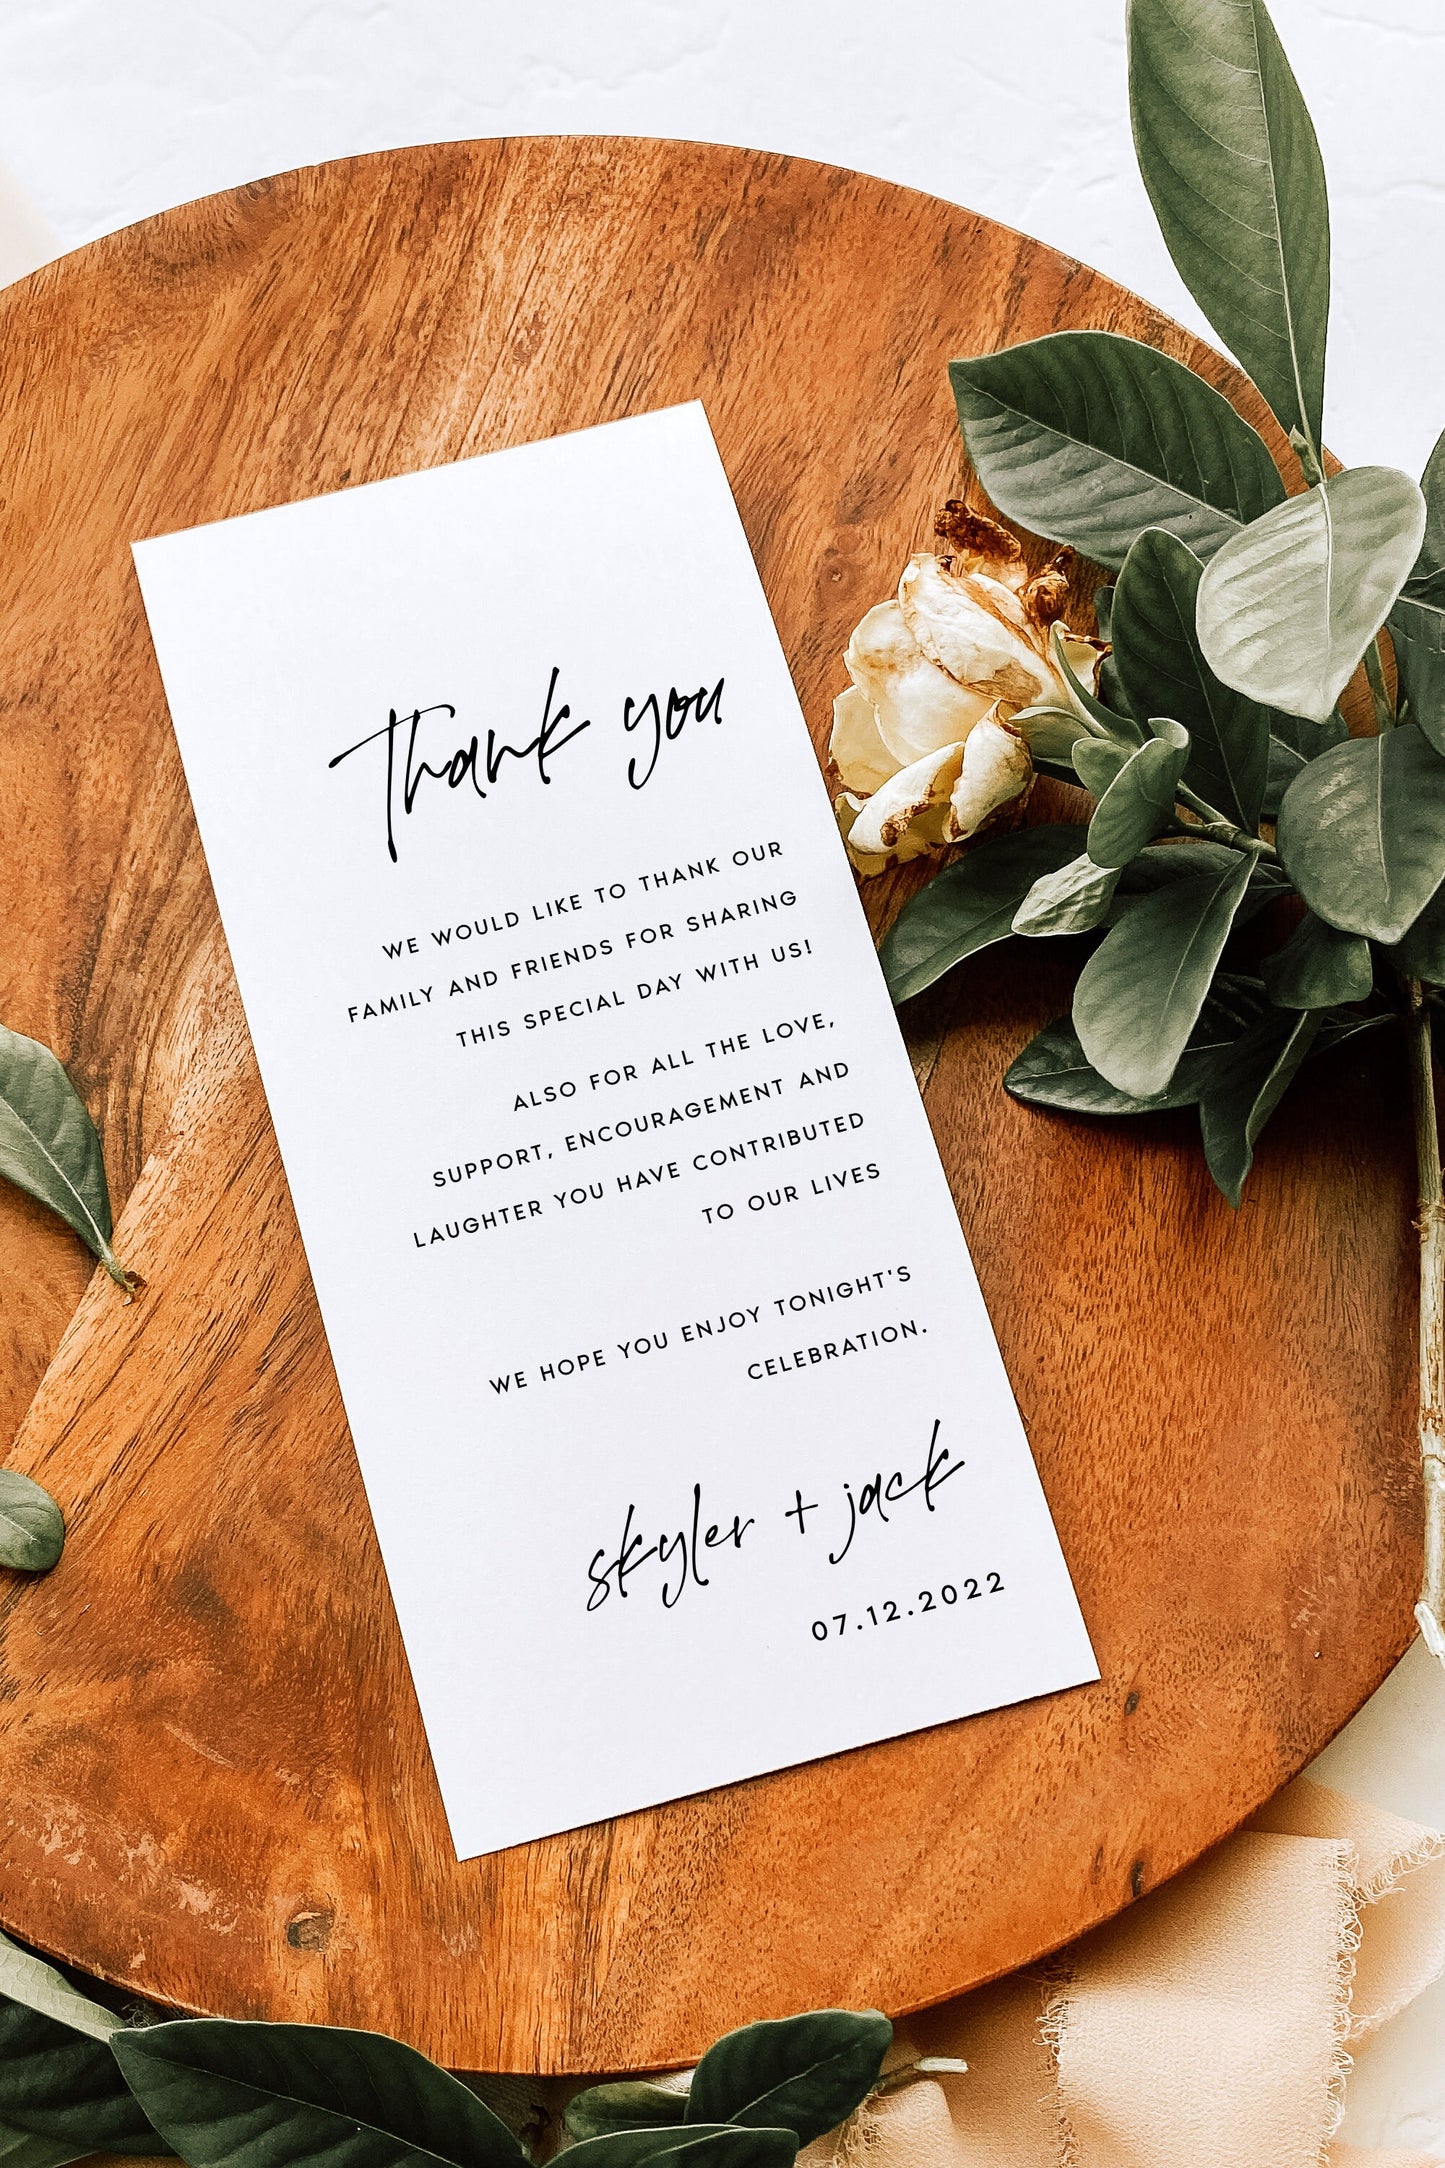 Thank you
WE WOULD LIKE TO THANK OUR
FAMILY AND FRIENDS FOR SHARING
THIS SPECIAL DAY WITH US!
ALSO FOR ALL THE LOVE,
SUPPORT, ENCOURAGEMENT AND
LAUGHTER YOU HAVE CONTRIBUTED
TO OUR LIVES
WE HOPE YOU ENJOY TONIGHT'S
CELEBRATION.
skyler + jack
07.12.2022